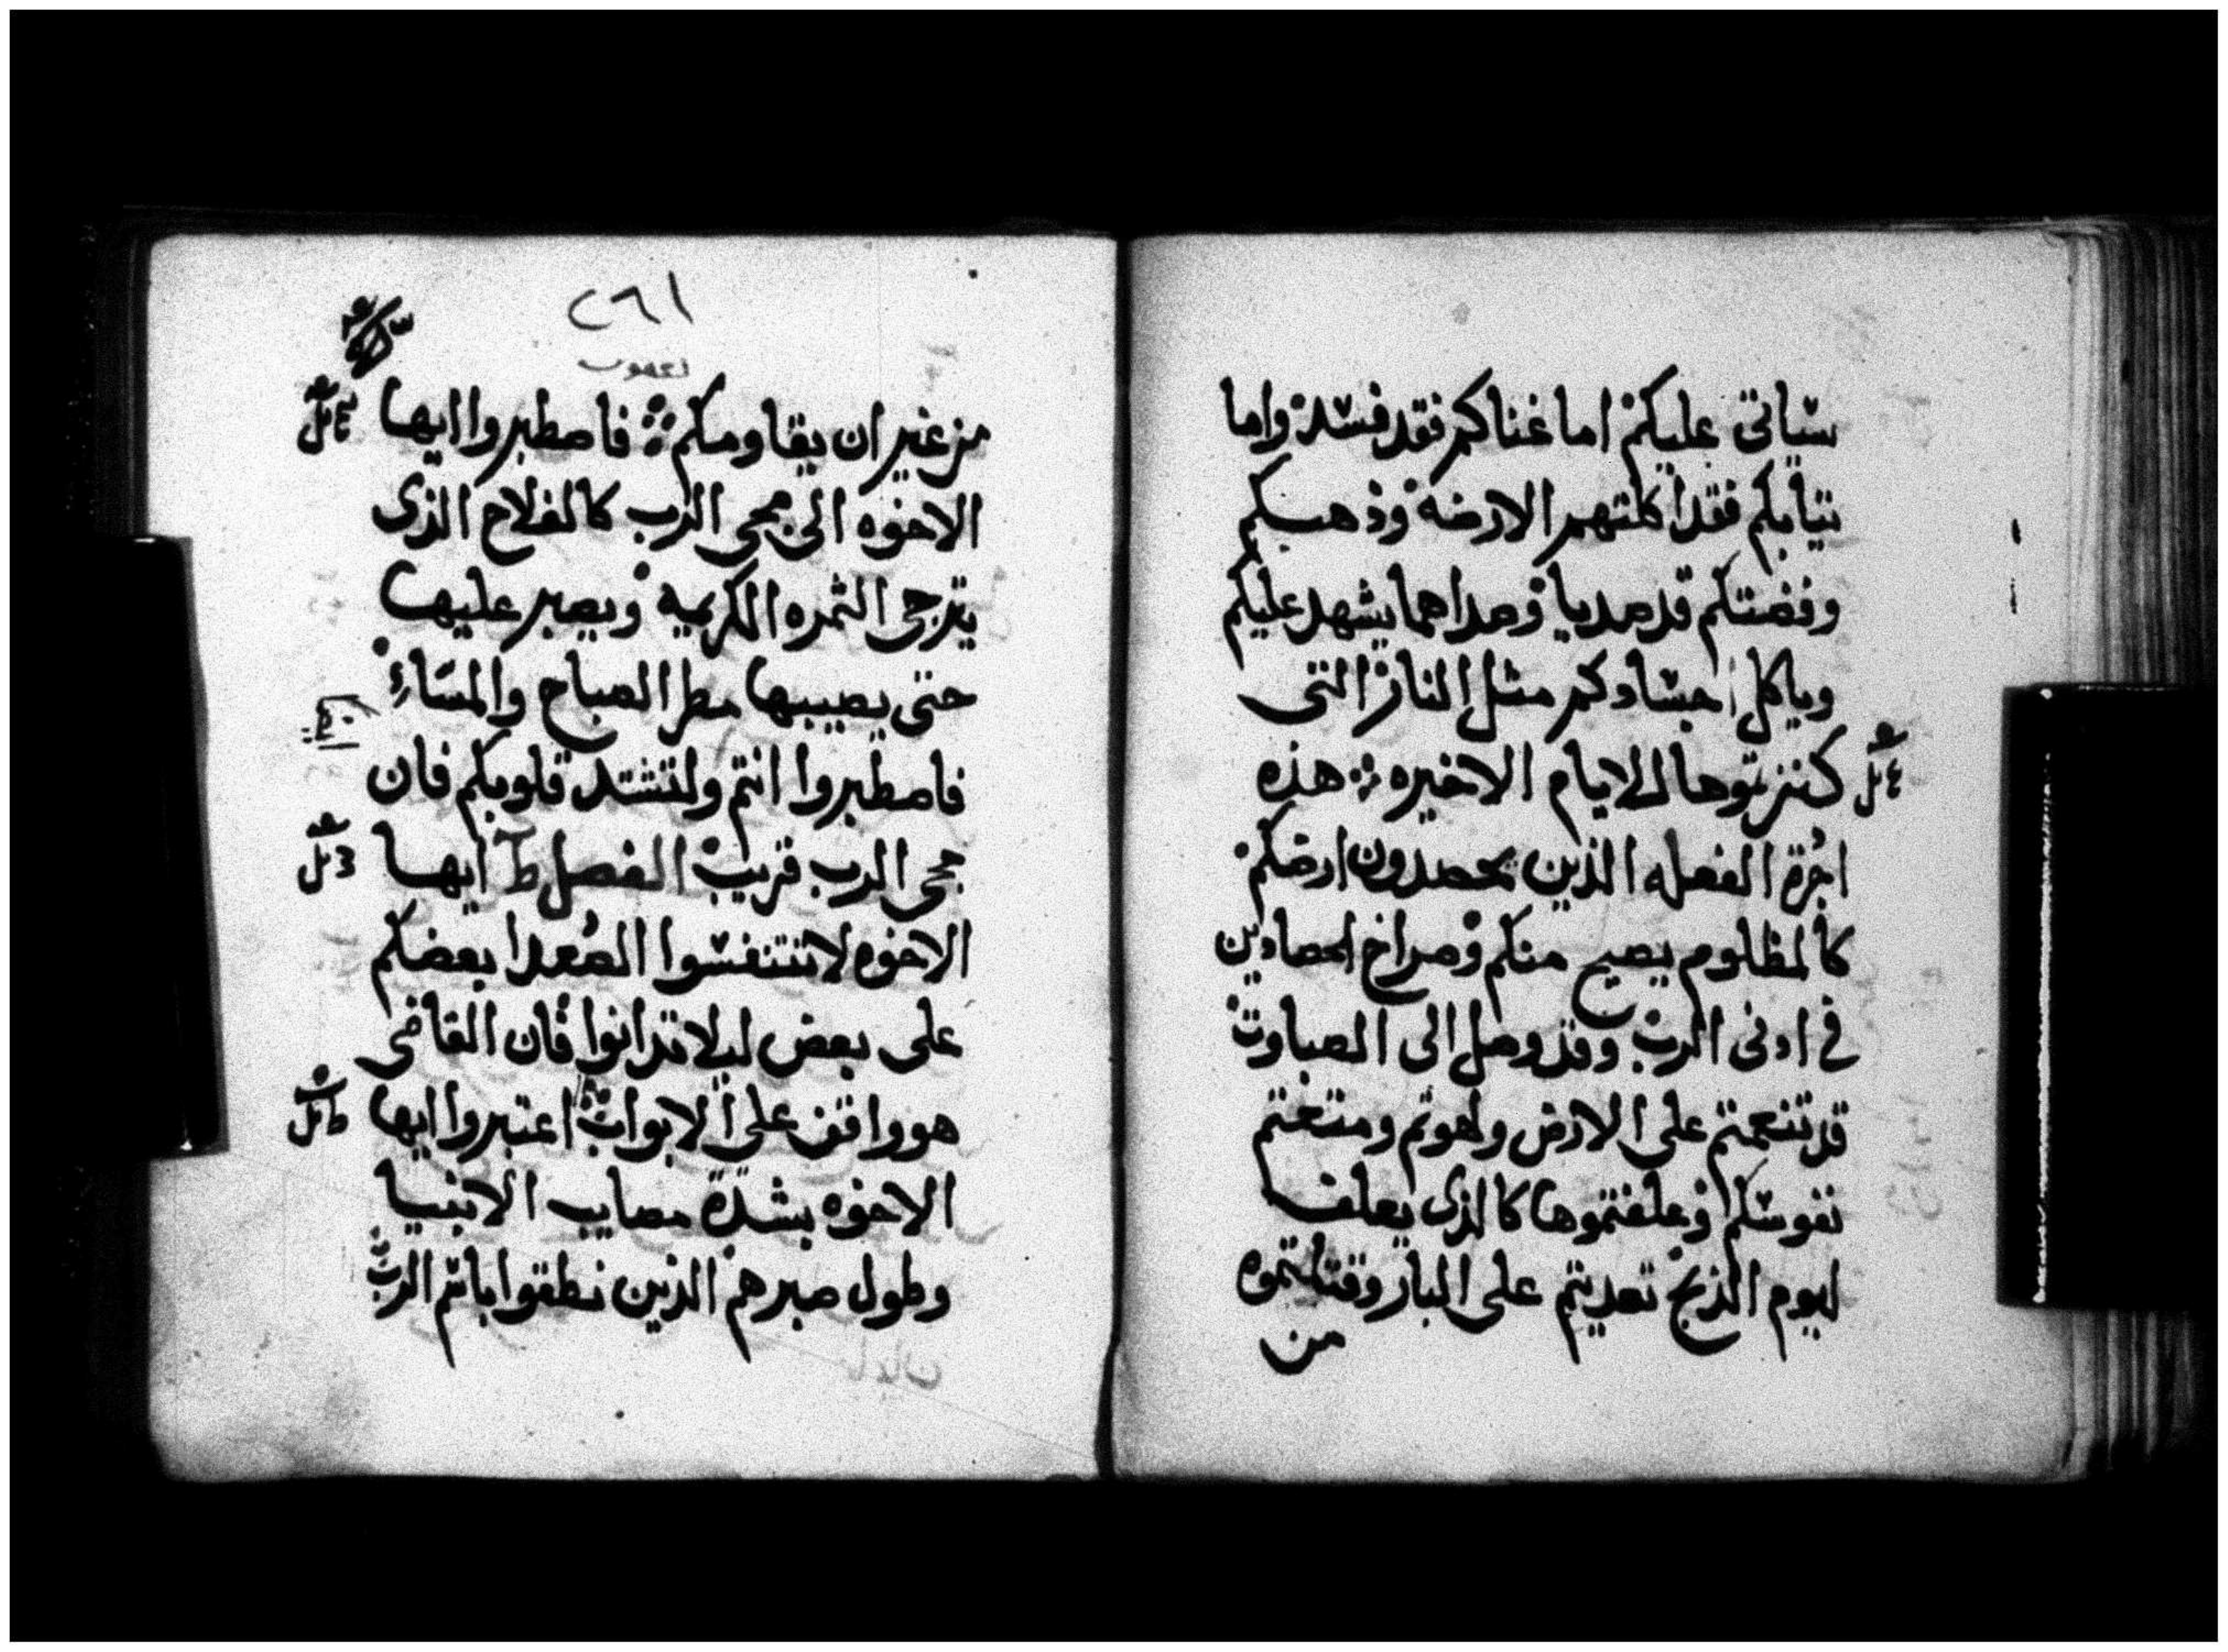 ستاتى عليكم اما غناكم فقد فسد واما
ثيابكم فقد اكلتهم الارضة وذهبكم
وفضتكم قد صديا وصداهما يشهد عليكم
وياكل اجسادكم مثل النار التى
كنزتموها للايام الاخيره هذه
اجرة الفعله الذين يحصدون ارضكم
كالمظلوم يصيح منكم وصراخ الحصادين
فى ادنى الرب وقد وصل الى الصباوت
قد تنعمتم على الارض ولهوتم ومتعتم
نفوسكم وعلفتموها كالذى يعلف
ليوم الذبح تعديتم على البار وقتلتموه
من
٢٦١
يعقوب
من غير ان يقاومكم فاصطبروا ايها
الاخوه الى مجى الرب كالفلاح الذى
يترجى الثمره الكريمه ويصبر عليها
حتى يصيبها مطر الصباح والمساء
فاصطبروا انتم ولتشتد قلوبكم فان
مجى الرب قريب الفصل ط ايها
الاخوه لا تتنفسوا الصعدا بعضكم
على بعض ليلا تدانوا فان القاضى
هو واقف على الابواب اعتبروا ايها
الاخوه بشدة مصايب الانبيا
وطول صبرهم الذين نطقوا باسم الرب